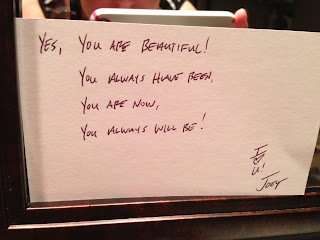 YES, YOU ARE BEAUTIFUL!
YOU ALWAYS HAVE BEEN,
YOU ARE NOW,
YOU ALWAYS WILL BE!
I
♡
U!
JOEY